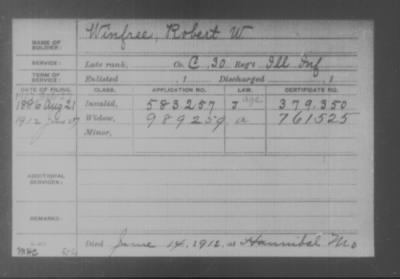 NAME OF SOLDIER: Winfree, Robert W
SERVICE: Late rank, Co. C, 30 Reg't Ill Inf
TERM OF SERVICE: Enlisted , 1 Discharged , 1
DATE OF FILING. CLASS. APPLICATION NO. LAW. CERTIFICATE NO.
1886 Aug 21 Invalid, 583257 J age 379.350
1912 Widow, 989259 a 761525
Minor,
ADDITIONAL SERVICES:
REMARKS:
Died June 14, 1912, at Hannibal Mo